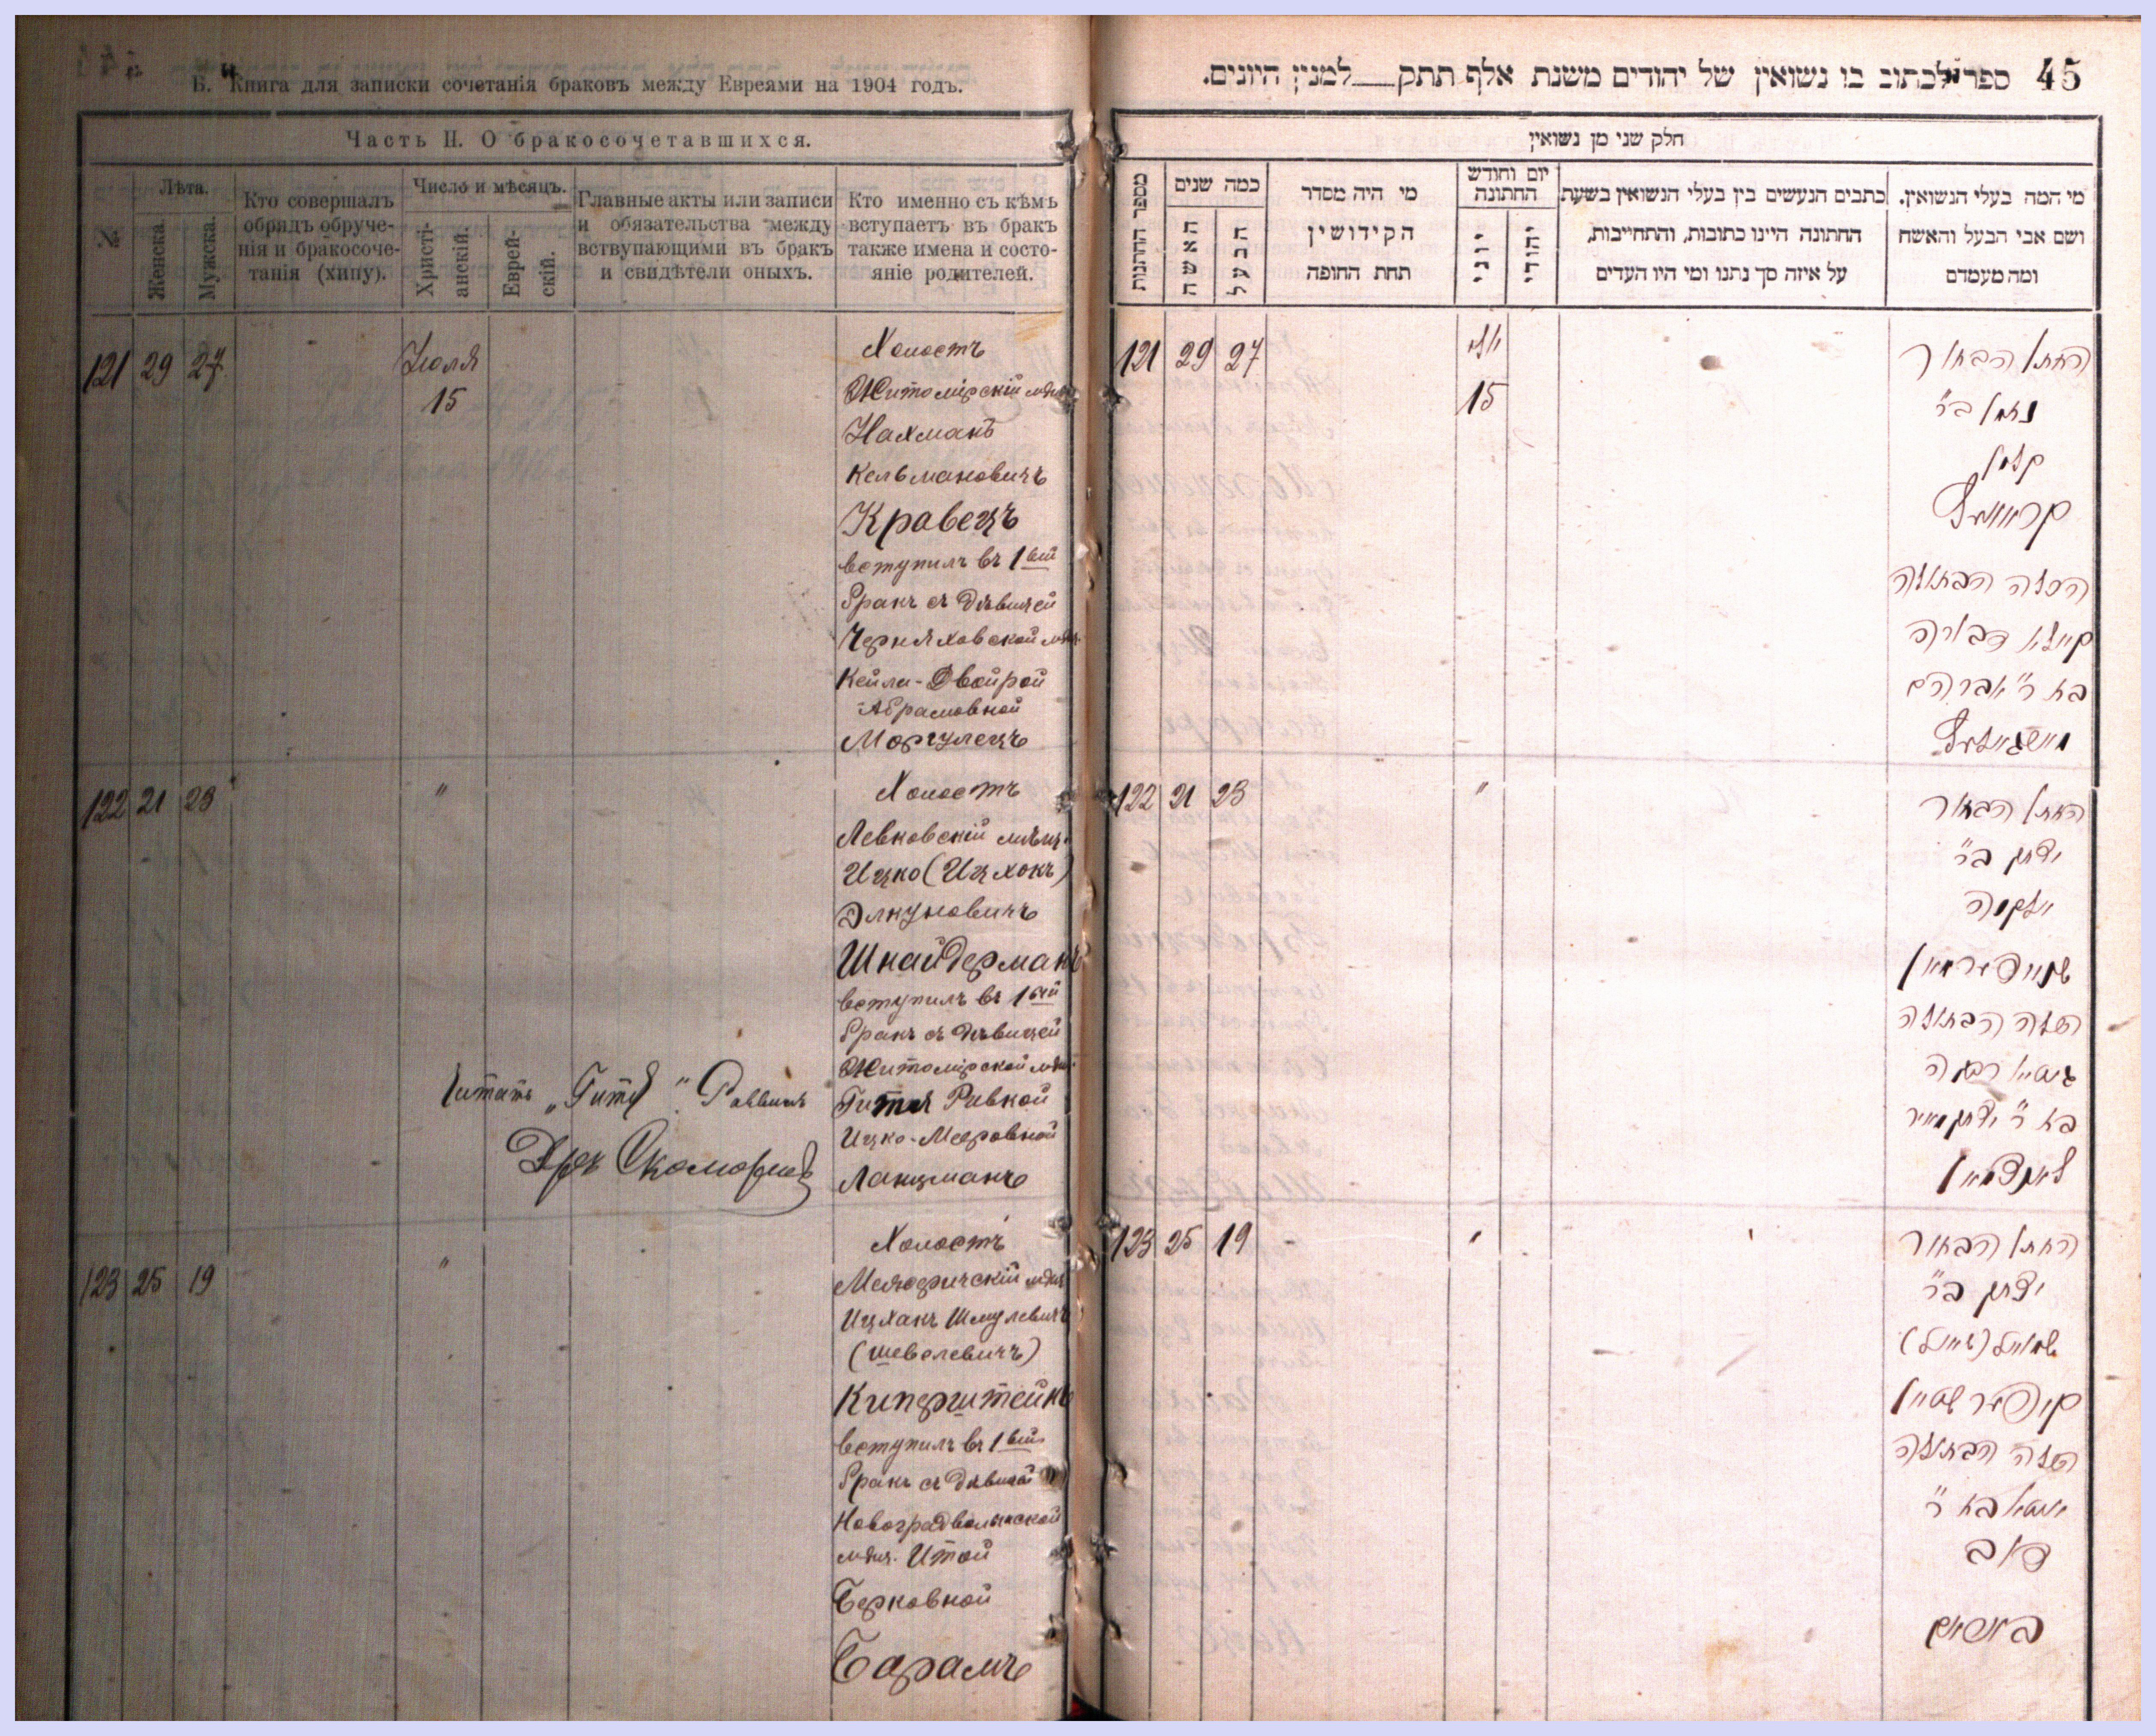 Б. Книга для записки сочетанія браковъ между Евреями на 1904 годъ.
Часть II. О бракосочетавшихся.
№
Лѣта.
Женска.
Мужска.
Кто совершалъ
обрядъ обруче-
нія и бракосоче-
танія (хипу).
Число и мѣсяцъ.
Христі-
анскій.
Еврей-
скій.
Главные акты или записи
и обязательства между
вствупающими въ бракъ
и свидѣтели оныхъ.
Кто именно съ кѣмъ
вступаетъ въ бракъ
также имена и состо-
яніе родителей.
121 29 27 Іюля
15
Холостъ
Житомірскій мѣщ.
Нахманъ
Кельмановичъ
Кравецъ
вступилъ въ 1ый
бракъ съ дѣвицей
Черняховской мѣщ.
Кейли-Двойрой
Абрамовной
Моргулецъ
122 21 23 "
Холостъ
Левковскій мѣщ.
Ицко (Ицхокъ)
Элкуновичъ
Шнайдерманъ
вступилъ въ 1ый
бракъ съ дѣвицей
Житомірской мѣщ.
Гитля Ривкой
Ицко-Мееровной
Ланцманъ
Читать „Гитя" Раввинъ
123 25 19 "
Холостъ
Межеричскій мѣщ.
Ицхакъ Шмулевичъ
(Шевелевичъ)
Киперштейнъ
вступилъ въ 1ый
бракъ съ дѣвицей
Новоградволынской
мѣщ. Итой
Берковной
Барамъ
45 ספר לכתוב בו נשואין של יהודים משנת אלף תתק למנין היונים.
חלק שני מן נשואין
מספר החתנות
כמה שנים
האשה
הבעל
מי היה מסדר
הקידושין
תחת החופה
יום וחודש
החתונה
יוני
יהודי
כתבים הנעשים בין בעלי הנשואין בשעת
החתונה היינו כתובות, והתחייבות,
על איזה סך נתנו ומי היו העדים
מי המה בעלי הנשואין.
ושם אבי הבעל והאשה
ומה מעמדם
121 29 27
15
החתן הבחור
נחמן בר'
קלמן
קראוועץ
הכלה הבתולה
קיילא דבורה
בת ר' אברהם
122 21 23 "
החתן הבחור
יצחק בר'
אלקנה
שניידערמאן
הכלה הבתולה
גיטיא רבקה
בת ר' יצחק מאיר
לאנצמאן
123 25 19 "
החתן הבחור
יצחק בר'
שמואל (שעוויל)
קיפערשטיין
הכלה הבתולה
איטא בת ר'
דוב
באראם